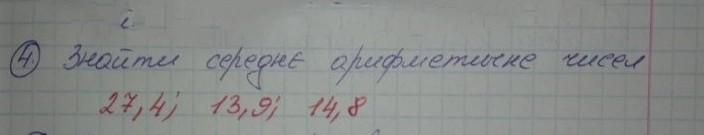 і.
4. Знайти середнє арифметичне чисел
27,4; 13,9; 14,8